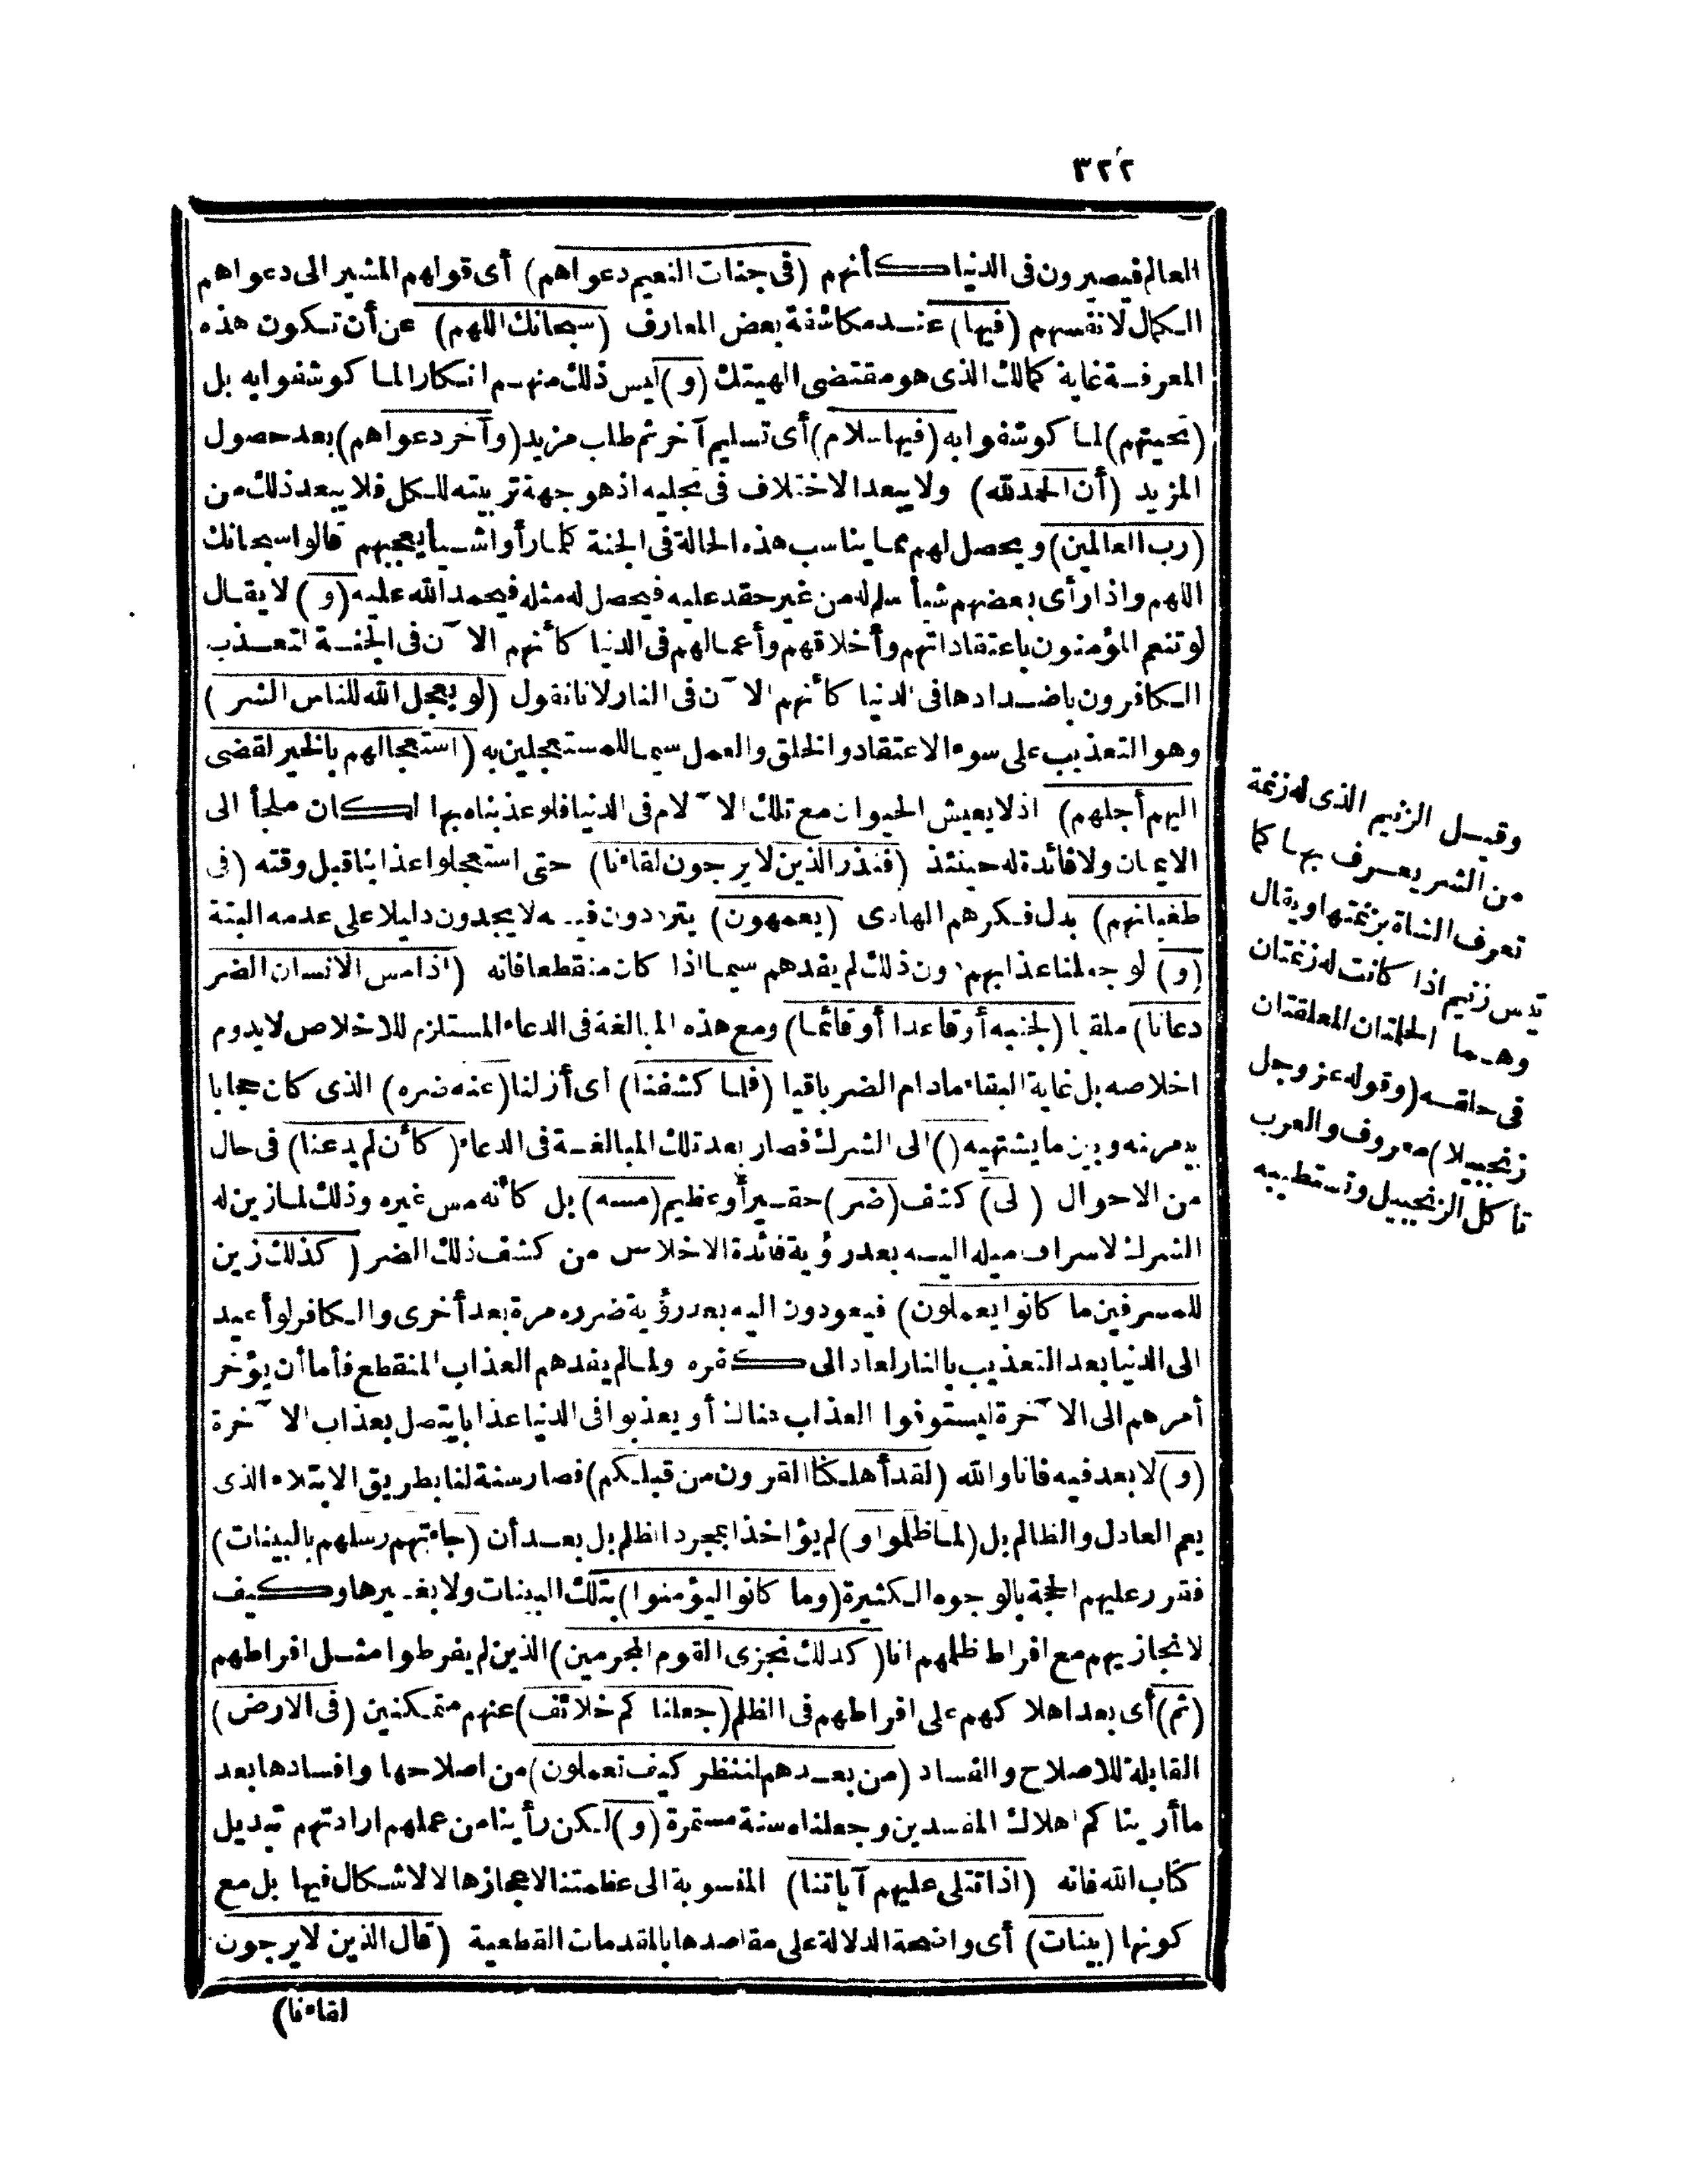 ٣٢٢
العالم فيصيرون فى الدنيا كأنهم (فى جنات النعيم دعواهم) أى قولهم المشير الى دعواهم
الكمال لانفسهم (فيها) عند مكاشفة بعض المعارف (سبحانك اللهم) عن أن تكون هذه
المعرفة غاية كمالك الذى هو مقتضى الهيتك (و) ليس ذلك منهم انكارا لما كوشفوا به بل
(تحيتهم) لما كوشفوا به (فيها سلام) أى تسليم آخر ثم طلب مزيد (وآخر دعواهم) بعد حصول
المزيد (أن الحمد لله) ولا يبعد الاختلاف فى تجليه اذ هو جهة تربيته للكل فلا يبعد ذلك من
(رب العالمين) ويحصل لهم مما يناسب هذه الحالة فى الجنة كلما رأوا شيأ يعجبهم قالوا سبحانك
اللهم واذا رأى بعضهم شيأ سلم له من غير حقد عليه فيحصل له مثله فيحمد الله عليه (و) لا يقال
لو تنعم المؤمنون باعتقاداتهم وأخلاقهم وأعمالهم فى الدنيا كأنهم الآن فى الجنة لتعذب
الكافرون باضدادها فى الدنيا كأنهم الآن فى النار لانا نقول (لو يعجل الله للناس الشر)
وهو التعذيب على سوء الاعتقاد والخلق والعمل سيما للمستعجلين به (استعجالهم بالخير لقضى
اليهم أجلهم) اذ لا يعيش الحيوان مع تلك الآلام فى الدنيا فلو عذبناه بها لكان ملجأ الى
الايمان ولا فائدة له حينئذ (فنذر الذين لا يرجون لقاءنا) حتى استعجلوا عذابنا قبل وقته (فى
طغيانهم) بدل فكرهم الهادى (يعمهون) يترددون فيه لا يجدون دليلا على عدمه البتة
(و) لو جعلنا عذابهم دون ذلك لم يفدهم سيما اذا كان منقطعا فانه (اذا مس الانسان الضر
دعانا) ملقيا (لجنبه أو قاعدا أو قائما) ومع هذه المبالغة فى الدعاء المستلزم للاخلاص لا يدوم
اخلاصه بل غاية البقاء مادام الضر باقيا (فلما كشفنا) أى أزلنا (عنه ضره) الذى كان حجابا
بينه وبين ما يشتهيه () الى الشرك فصار بعد تلك المبالغة فى الدعاء (كأن لم يدعنا) فى حال
من الاحوال (لى) كشف (ضر) حقير أو عظيم (مسه) بل كأنه مس غيره وذلك لما زين له
الشرك لاسراف ميله اليه بعد رؤية فائدة الاخلاص من كشف ذلك الضر (كذلك زين
للمسرفين ما كانوا يعملون) فيعودون اليه بعد رؤية ضرره مرة بعد أخرى والكافر لو أعيد
الى الدنيا بعد التعذيب بالنار لعاد الى كفره ولما لم يفدهم العذاب المنقطع فأما أن يؤخر
أمرهم الى الآخرة ليستوفوا العذاب هنالك أو يعذبوا فى الدنيا عذابا يتصل بعذاب الآخرة
(و) لا بعد فيه فانا والله (لقد أهلكنا القرون من قبلكم) فصار سنة لنا بطريق الابتلاء الذى
يعم العادل والظالم بل (لما ظلموا و) لم يؤاخذا بمجرد الظلم بل بعد أن (جاءتهم رسلهم بالبينات)
فقرر عليهم الحجة بالوجوه الكثيرة (وما كانوا ليؤمنوا) بتلك البينات ولا بغيرها وكيف
لا نجازيهم مع افراط ظلمهم انا (كذلك نجزى القوم المجرمين) الذين لم يفرطوا مثل افراطهم
(ثم) أى بعد اهلاكهم على افراطهم فى الظلم (جعلناكم خلائف) عنهم متمكنين (فى الارض)
القابلة للاصلاح والفساد (من بعدهم لننظر كيف تعملون) من اصلاحها وافسادها بعد
ما أريناكم اهلاك المفسدين وجعلناه سنة مستمرة (و) لكن رأينا من عملهم ارادتهم تبديل
كتاب الله فانه (اذا تتلى عليهم آياتنا) المنسوبة الى عظمتنا لاعجازها لا لاشكال فيها بل مع
كونها (بينات) أى واضحة الدلالة على مقاصدها بالمقدمات القطعية (قال الذين لا يرجون
لقاءنا)
وقيل الزنيم الذى له زنمة
من الشر يعرف بها كما
تعرف الشاة بزنمتها ويقال
تيس زنيم اذا كانت له زنمتان
وهما الحلمتان المعلقتان
فى حلقه (وقوله عز وجل
زنجبيلا) معروف والعرب
تأكل الزنجبيل وتستطيبه